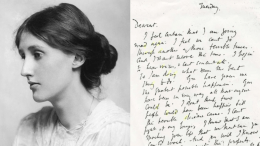 Tuesday
Dearest,
I feel certain that I am going
mad again: I feel we cant go
through another of those terrible times.
And I shant recover this time. I begin
to hear voices, & cant concentrate.
So I am doing what seems the best
thing to do. You have given me
the greatest possible happiness. You
have been in every way all that anyone
could be. I dont think two
people could have been happier till
this terrible disease came. I cant
fight it any longer, I know that I am
spoiling your life, that without me you
could work. And you will I know.